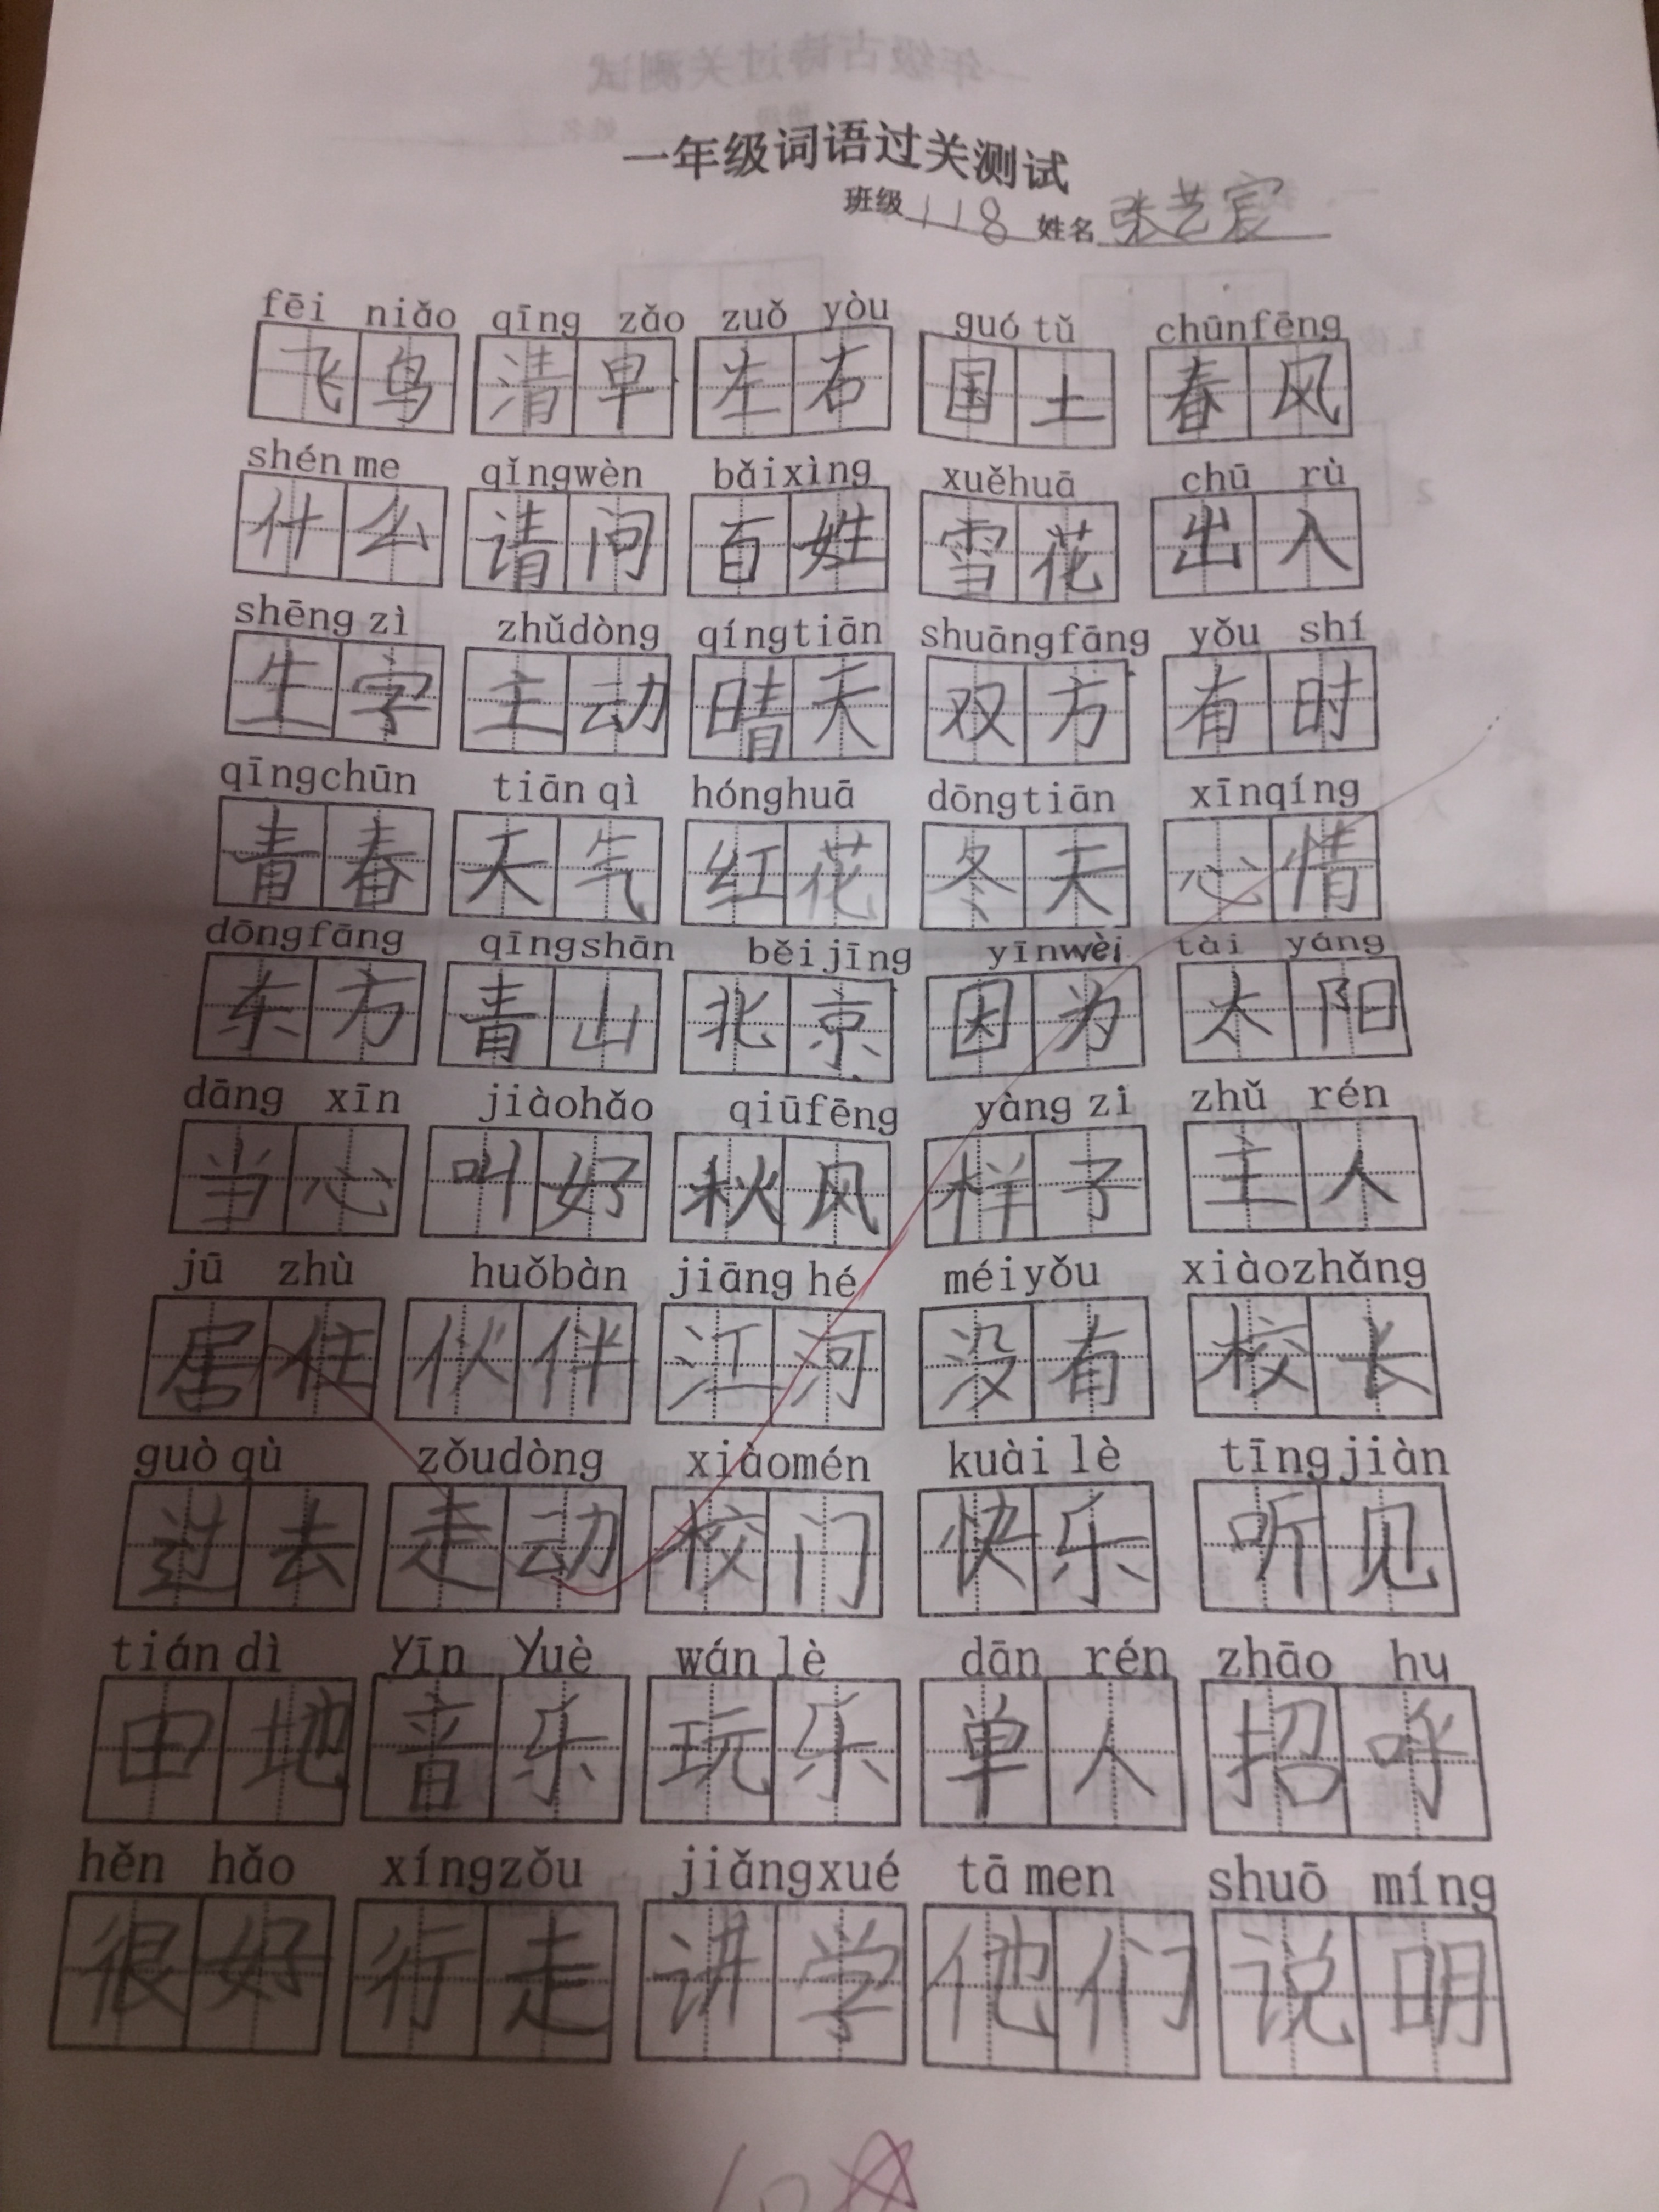 一年级词语过关测试
班级 118 姓名 张艺宸
fēi niǎo qīng zǎo zuǒ yòu guó tǔ chūnfēng
飞鸟 清早 左右 国土 春风
shén me qǐngwèn bǎixìng xuěhuā chū rù
什么 请问 百姓 雪花 出入
shēng zì zhǔdòng qíngtiān shuāngfāng yǒu shí
生字 主动 晴天 双方 有时
qīngchūn tiān qì hónghuā dōngtiān xīnqíng
青春 天气 红花 冬天 心情
dōngfāng qīngshān běijīng yīnwèi tài yáng
东方 青山 北京 因为 太阳
dāng xīn jiàohǎo qiūfēng yàng zi zhǔ rén
当心 叫好 秋风 样子 主人
jū zhù huǒbàn jiāng hé méiyǒu xiàozhǎng
居住 伙伴 江河 没有 校长
guò qù zǒudòng xiàomén kuài lè tīngjiàn
过去 走动 校门 快乐 听见
tián dì yīn yuè wán lè dān rén zhāo hu
田地 音乐 玩乐 单人 招呼
hěn hǎo xíngzǒu jiǎngxué tā men shuō míng
很好 行走 讲学 他们 说明